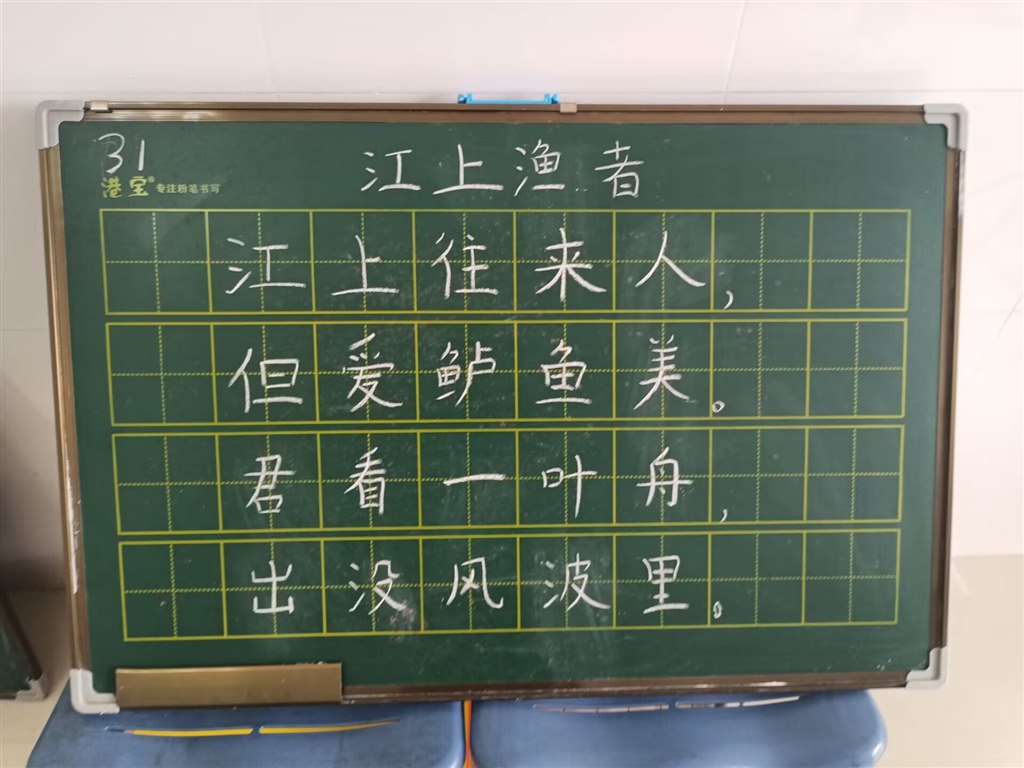 31
江上渔者
港宝® 专注粉笔书写
江上往来人,
但爱鲈鱼美。
君看一叶舟,
出没风波里。